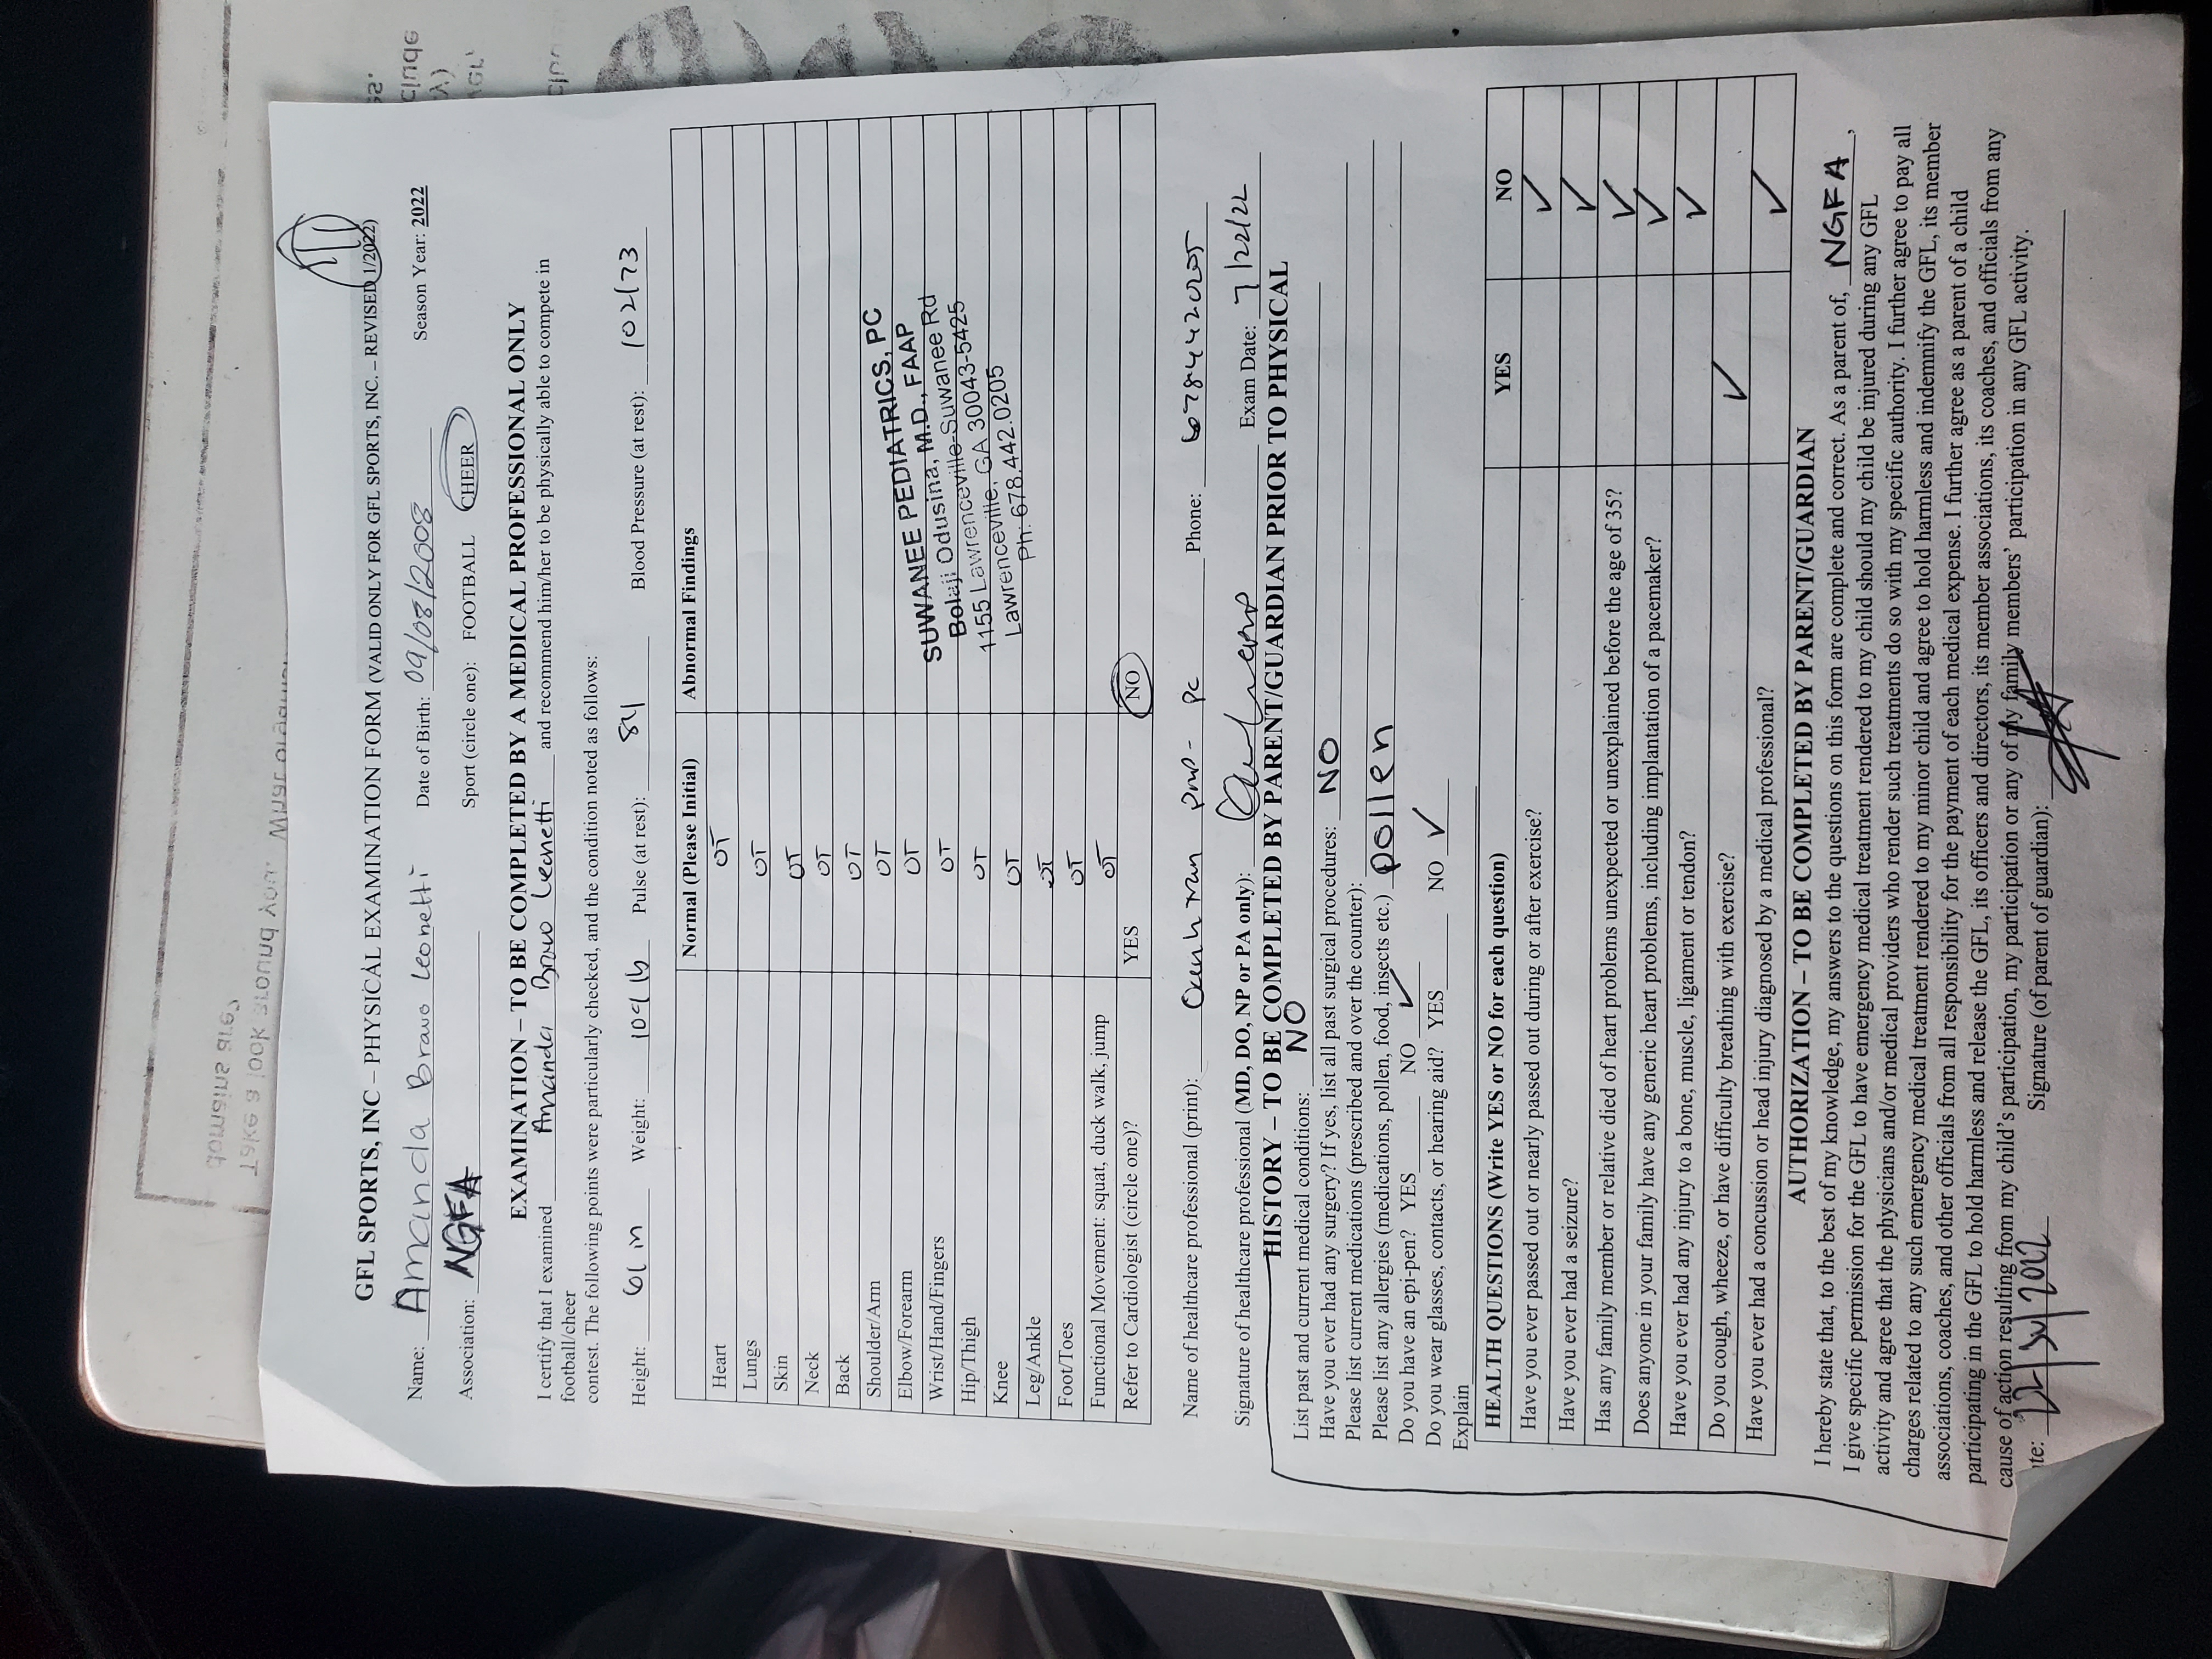 GFL SPORTS, INC – PHYSICAL EXAMINATION FORM (VALID ONLY FOR GFL SPORTS, INC. – REVISED 1/2022)
Name: Amanda Bravo Leonetti Date of Birth: 09/08/2008 Season Year: 2022
Association: NGFA Sport (circle one): FOOTBALL CHEER
EXAMINATION – TO BE COMPLETED BY A MEDICAL PROFESSIONAL ONLY
I certify that I examined Amanda Bravo Leonetti and recommend him/her to be physically able to compete in
football/cheer
contest. The following points were particularly checked, and the condition noted as follows:
Height: 61 in Weight: 109 lb Pulse (at rest): 84 Blood Pressure (at rest): 102/73
Normal (Please Initial) Abnormal Findings
Heart OT
Lungs OT
Skin OT
Neck OT
Back OT
Shoulder/Arm OT
Elbow/Forearm OT
Wrist/Hand/Fingers OT
Hip/Thigh OT
Knee OT
Leg/Ankle OT
Foot/Toes OT
Functional Movement: squat, duck walk, jump OT
Refer to Cardiologist (circle one)? YES NO
SUWANEE PEDIATRICS, PC
Bolaji Odusina, M.D., FAAP
1155 Lawrenceville-Suwanee Rd
Lawrenceville, GA 30043-5425
Ph: 678.442.0205
Name of healthcare professional (print): PC Phone: 6784420205
Signature of healthcare professional (MD, DO, NP or PA only): Exam Date: 7/22/22
HISTORY – TO BE COMPLETED BY PARENT/GUARDIAN PRIOR TO PHYSICAL
List past and current medical conditions: NO
Have you ever had any surgery? If yes, list all past surgical procedures: NO
Please list current medications (prescribed and over the counter):
Please list any allergies (medications, pollen, food, insects etc.) pollen
Do you have an epi-pen? YES NO ✓
Do you wear glasses, contacts, or hearing aid? YES NO ✓
Explain
HEALTH QUESTIONS (Write YES or NO for each question) YES NO
Have you ever passed out or nearly passed out during or after exercise? ✓
Have you ever had a seizure? ✓
Has any family member or relative died of heart problems unexpected or unexplained before the age of 35? ✓
Does anyone in your family have any generic heart problems, including implantation of a pacemaker? ✓
Have you ever had any injury to a bone, muscle, ligament or tendon? ✓
Do you cough, wheeze, or have difficulty breathing with exercise? ✓
Have you ever had a concussion or head injury diagnosed by a medical professional? ✓
AUTHORIZATION – TO BE COMPLETED BY PARENT/GUARDIAN
I hereby state that, to the best of my knowledge, my answers to the questions on this form are complete and correct. As a parent of, NGFA,
I give specific permission for the GFL to have emergency medical treatment rendered to my child should my child be injured during any GFL
activity and agree that the physicians and/or medical providers who render such treatments do so with my specific authority. I further agree to pay all
charges related to any such emergency medical treatment rendered to my minor child and agree to hold harmless and indemnify the GFL, its member
associations, coaches, and other officials from all responsibility for the payment of each medical expense. I further agree as a parent of a child
participating in the GFL to hold harmless and release the GFL, its officers and directors, its member associations, its coaches, and officials from any
cause of action resulting from my child's participation, my participation or any of my family members' participation in any GFL activity.
te: Signature (of parent of guardian):